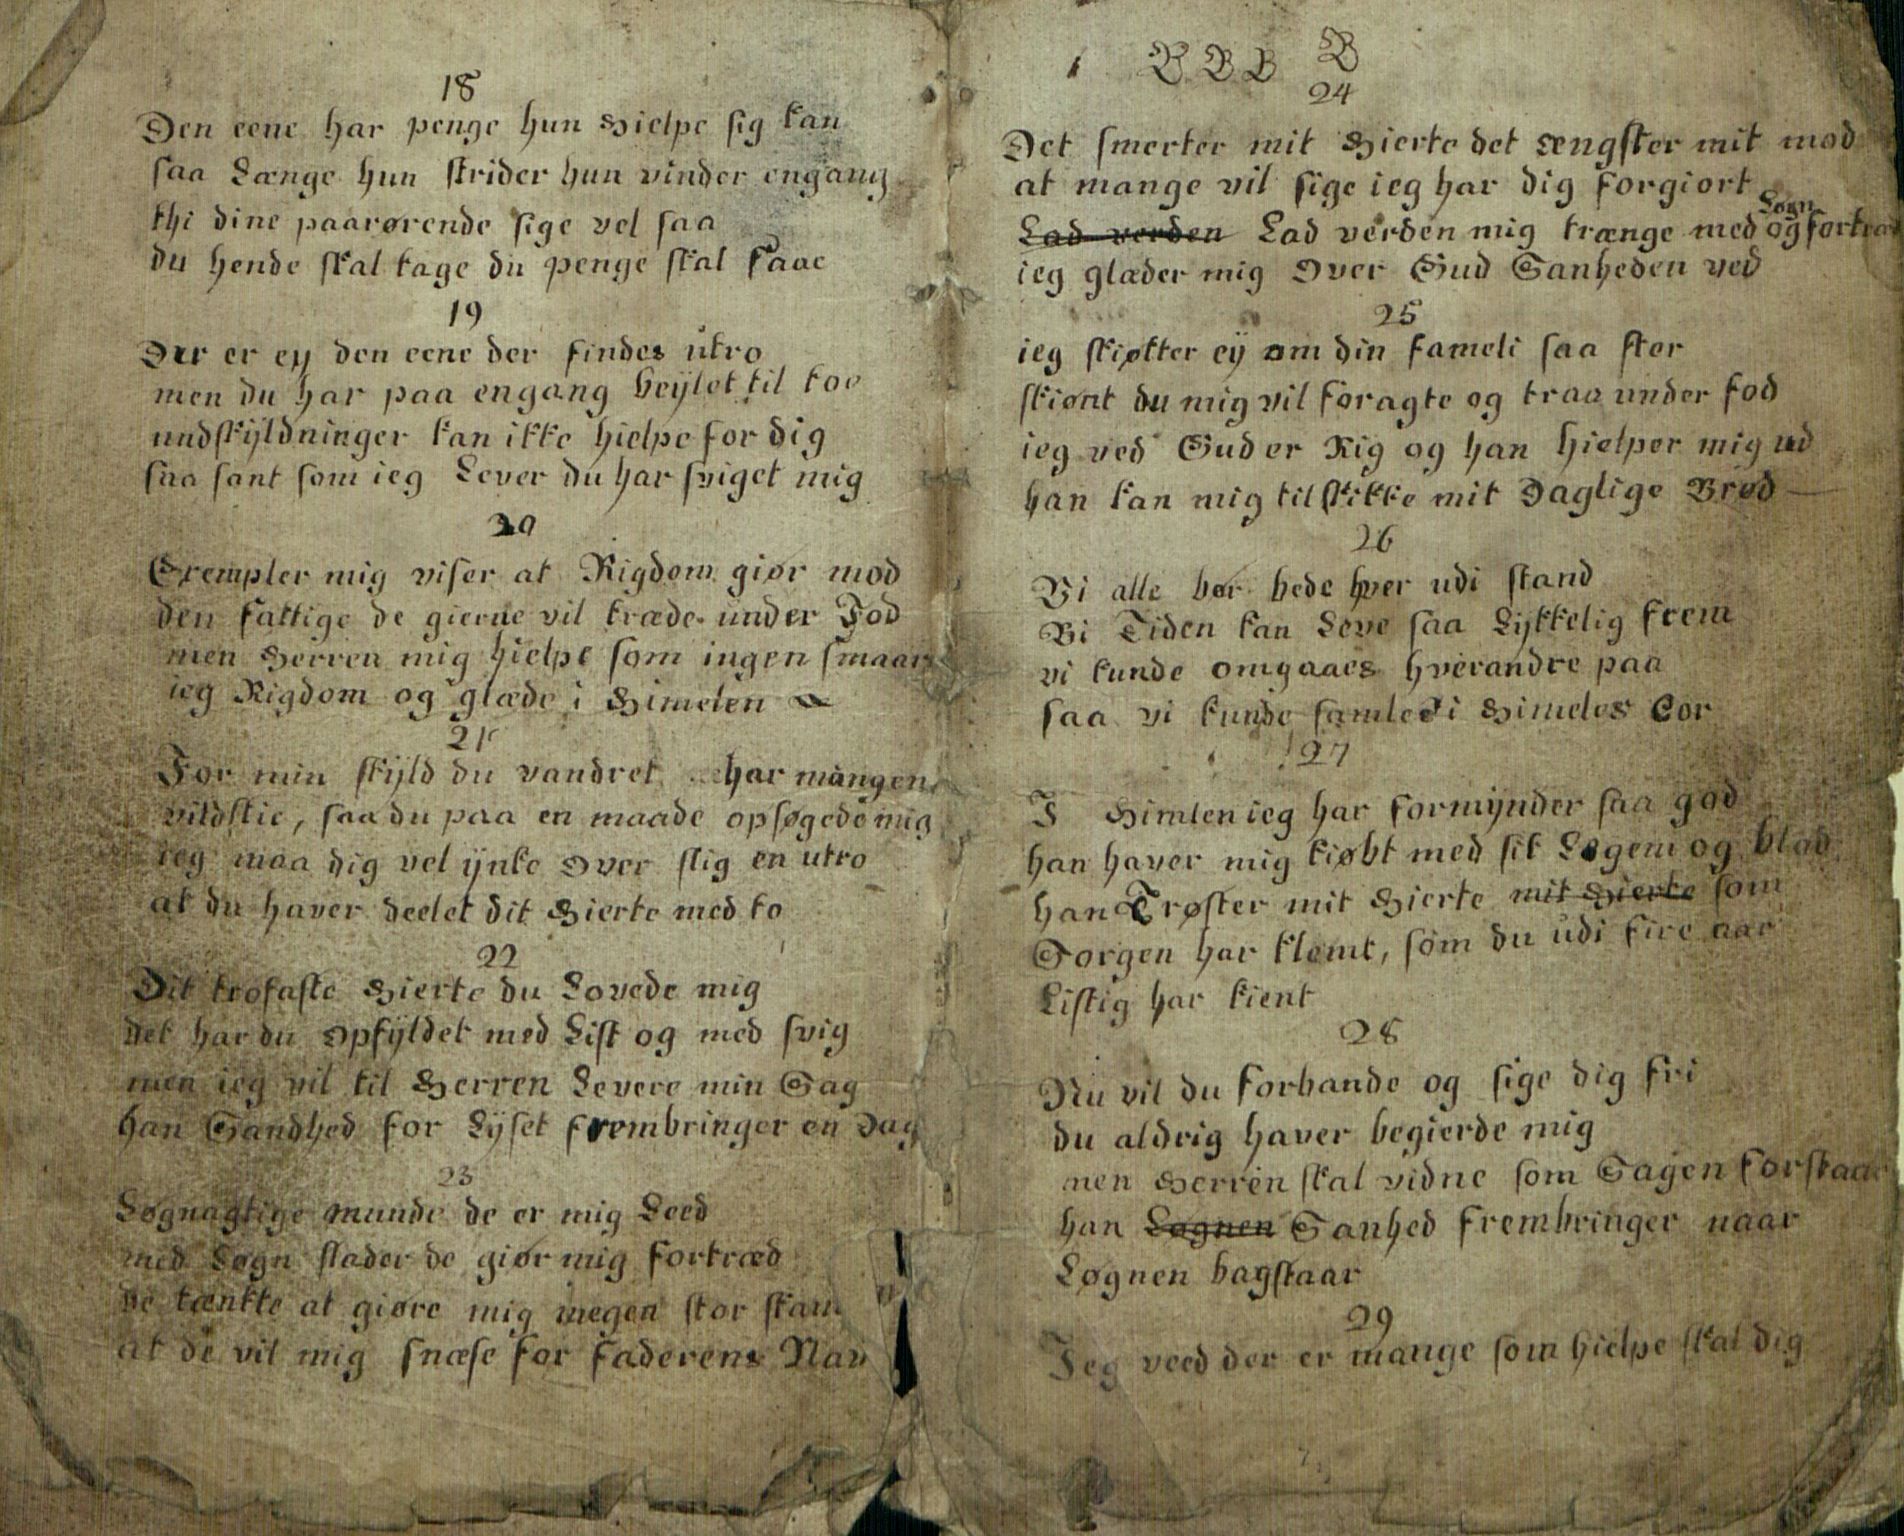 18
Den eene har penge hun Hielpe sig kan
saa Længe hun strider hun vinder engang
thi dine paarørende sige vel saa
du hende skal tage du penge skal faae
19
Der er ey den eene der findes utro
men du har paa engang beylet til toe
undskyldninger kan ikke hielpe for dig
saa sant som ieg Lever du har sviget mig
20
Exempler mig viser at Rigdom giør mod
den fattige de gierne vil træde under Fod
men Herren mig hielpe som ingen smaar
ieg Rigdom og glæde i Himelen
21
For min skyld du vandret har mangen
vildstie, saa du paa en maade opsøgede mig
ieg maa dig vel ynke over slig en utro
at du haver deelet dit Hierte med to
22
Dit trofaste Hierte du Lovede mig
det har du opfyldet med List og med svig
men ieg vil til Herren Levere min Sag
han Sandhed for Lyset frembringer en Dag
23
Løgnagtige munde de er mig Leed
med Løgn slader de giør mig fortræd
de tænkte at giøre mig megen stor skam
at de vil mig snæse for faderens Nav
B B B B
24
Det smerter mit Hierte det ængster mit mod
at mange vil sige ieg har dig forgiort
Lad verden Lad verden mig trænge med Løgn og fortræd
ieg glæder mig over Gud Sanheden ved
25
ieg skiøtter ey om din fameli saa stor
skiønt du mig vil foragte og traa under fod
ieg ved Gud er Rig og han hielper mig ud
han kan mig tilskikke mit Daglige Brød
26
Vi alle bør bede hver udi stand
Vi Tiden kan Leve saa Lykkelig frem
vi kunde omgaaes hverandre paa
saa vi kunde samled i Himeles Cor
27
I Himlen ieg har formynder saa god
han haver mig kiøbt med sit Legem og blod
han Trøster mit Hierte mit Hierte som
Sorgen har klemt, som du udi fire aar
Listig har kient
28
Nu vil du forbande og sige dig fri
du aldrig haver begierde mig
men Herren skal vidne som Sagen forstaar
han Løgnen Sanhed frembringer naar
Løgnen bagstaar
29
Jeg veed der er mange som hielpe skal dig